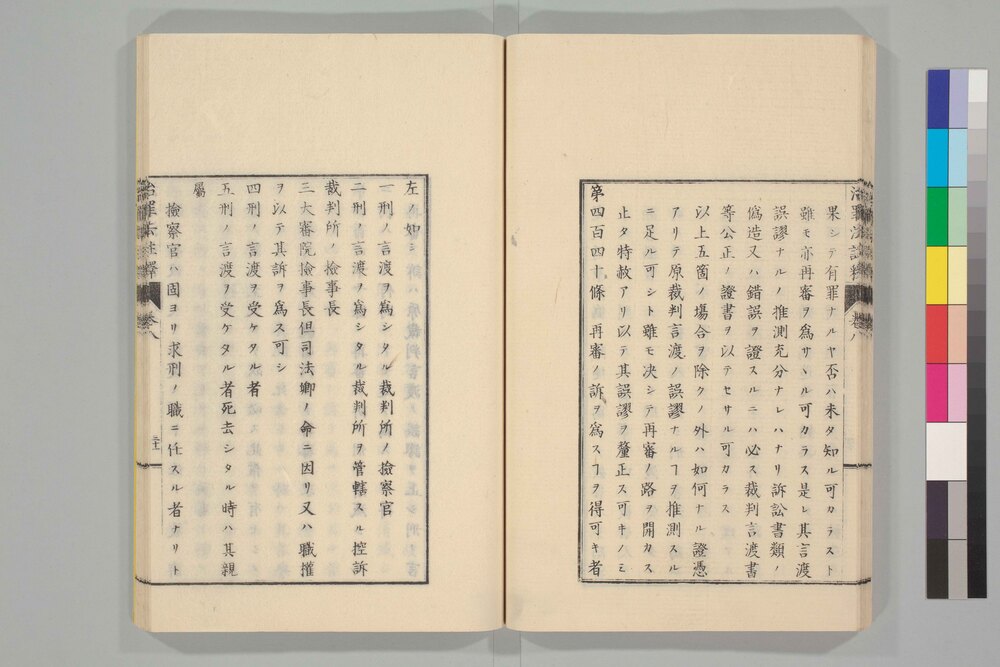 果シテ有罪ナルヤ否ハ未タ知ル可カラスト
雖モ亦再審ヲ爲サヽル可カラス是レ其言渡
誤謬ナルノ推測充分ナレハナリ訴訟書類ノ
僞造又ハ錯誤ヲ證スルニハ必ス裁判言渡書
等公正ノ證書ヲ以テセサル可カラス
以上五箇ノ塲合ヲ除クノ外ハ如何ナル證憑
アリテ原裁判言渡ノ誤謬ナルヿヲ推測スル
ニ足ル可シト雖モ决シテ再審ノ路ヲ開カス
止タ特赦アリ以テ其誤謬ヲ釐正ス可キノミ
第四百四十條 再審ノ訴ヲ爲スヿヲ得可キ者
左ノ如シ
一 刑ノ言渡ヲ爲シタル裁判所ノ檢察官
二 刑ノ言渡ヲ爲シタル裁判所ヲ管轄スル控訴
裁判所ノ檢事長
三 大審院檢事長但司法卿ノ命ニ因リ又ハ職權
ヲ以テ其訴ヲ爲ス可シ
四 刑ノ言渡ヲ受ケタル者
五 刑ノ言渡ヲ受ケタル者死去シタル時ハ其親
屬
檢察官ハ固ヨリ求刑ノ職ニ任スル者ナリト
治罪法註釋 卷八